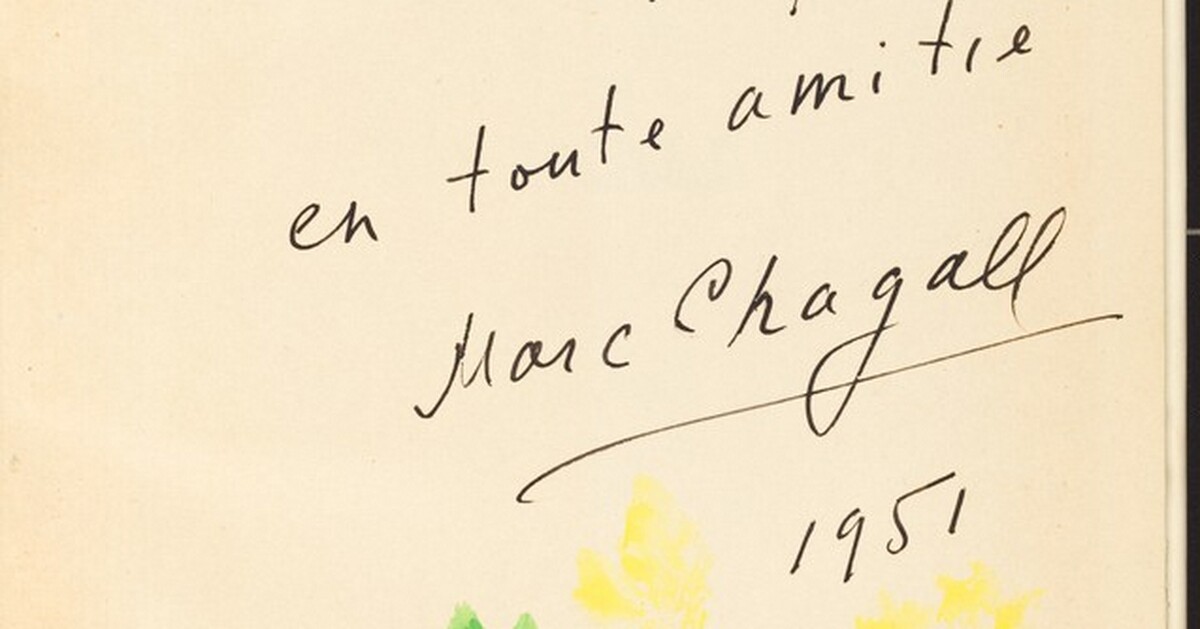 en toute amitie
Marc Chagall
1951